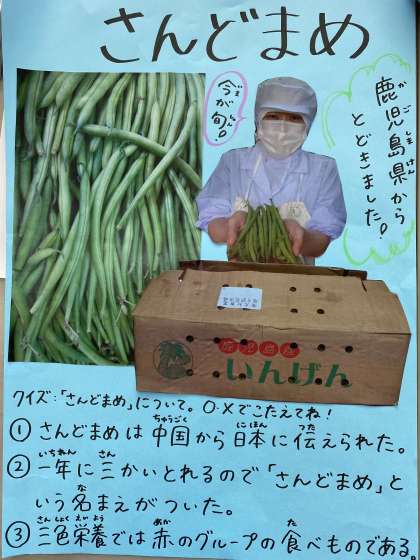 さんどまめ
今が旬!
鹿児島県から
とどきました!
鹿児島産
いんげん
クイズ:「さんどまめ」について。○・×でこたえてね!
①さんどまめは中国から日本に伝えられた。
②一年に三かいとれるので「さんどまめ」と
いう名まえがついた。
③三色栄養では赤のグループの食べものである。